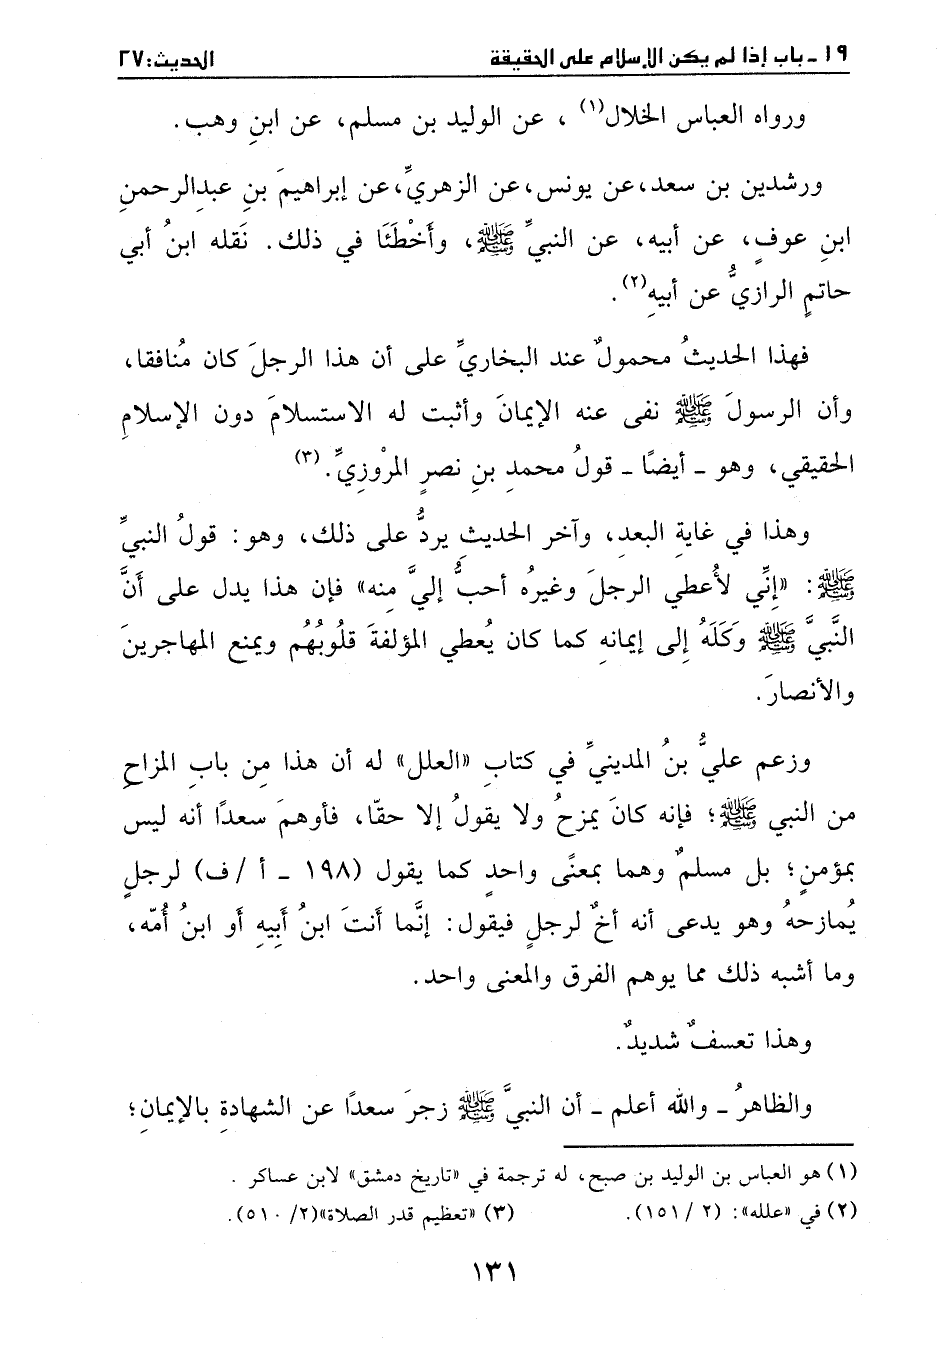 ١٩ ـ باب إذا لم يكن الإسلام على الحقيقة الحديث: ٢٧
ورواه العباس الخلال(١) ، عن الوليد بن مسلم، عن ابنِ وهب.
ورشدين بن سعد، عن يونس، عن الزهريِّ، عن إبراهيمَ بنِ عبدِالرحمنِ
ابنِ عوفٍ، عن أبيه، عن النبيِّ ﷺ، وأَخْطَئَا في ذلك. نَقله ابنُ أبي
حاتمٍ الرازيُّ عن أبيهِ(٢).
فهذا الحديثُ محمولٌ عند البخاريِّ على أن هذا الرجلَ كان مُنافقا،
وأن الرسولَ ﷺ نفى عنه الإيمانَ وأثبت له الاستسلامَ دون الإسلامِ
الحقيقي، وهو ـ أيضًا ـ قولُ محمدِ بنِ نصرٍ المرْوزِيِّ.(٣)
وهذا في غايةِ البعدِ، وآخر الحديثِ يردُّ على ذلك، وهو: قولُ النبيِّ
ﷺ: «إِنِّي لأُعطي الرجلَ وغيرُه أحبُّ إليَّ مِنه» فإن هذا يدل على أَنَّ
النَّبيَّ ﷺ وَكَلَهُ إِلى إيمانهِ كما كان يُعطي المؤلفةَ قلُوبُهُم ويمنع المهاجرينَ
والأنصارَ.
وزعم عليُّ بنُ المدينيِّ في كتابِ «العلل» له أن هذا مِن بابِ المزاحِ
من النبي ﷺ؛ فإنه كانَ يمزحُ ولا يقولُ إلا حقّا، فأوهمَ سعدًا أنه ليس
بمؤمنٍ؛ بل مسلمٌ وهما بمعنًى واحدٍ كما يقول (١٩٨ ـ أ /ف) لرجلٍ
يُمازحهُ وهو يدعى أنه أخٌ لرجلٍ فيقول: إِنَّما أَنتَ ابنُ أَبيهِ أو ابنُ أُمّه،
وما أشبه ذلك مما يوهم الفرق والمعنى واحد.
وهذا تعسفٌ شديدٌ.
والظاهرُ ـ والله أعلم ـ أن النبيَّ ﷺ زجرَ سعدًا عن الشهادةِ بالإيمانِ؛
(١) هو العباس بن الوليد بن صبح، له ترجمة في «تاريخ دمشق» لابن عساكر .
(٢) في «علله»: (٢ / ١٥١). (٣) «تعظيم قدر الصلاة»(٢/ ٥١٠).
١٣١